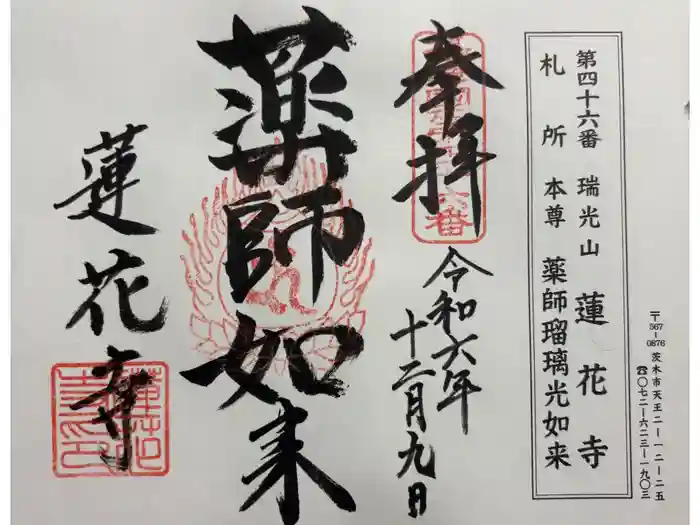 第四十六番 瑞光山 蓮花寺
札所 本尊 薬師瑠璃光如来
〒567-0876 茨木市天王二-一二-二五
☎〇七二-六二三-一九〇三
奉拝
令和六年
十二月九日
薬師如来
蓮花寺